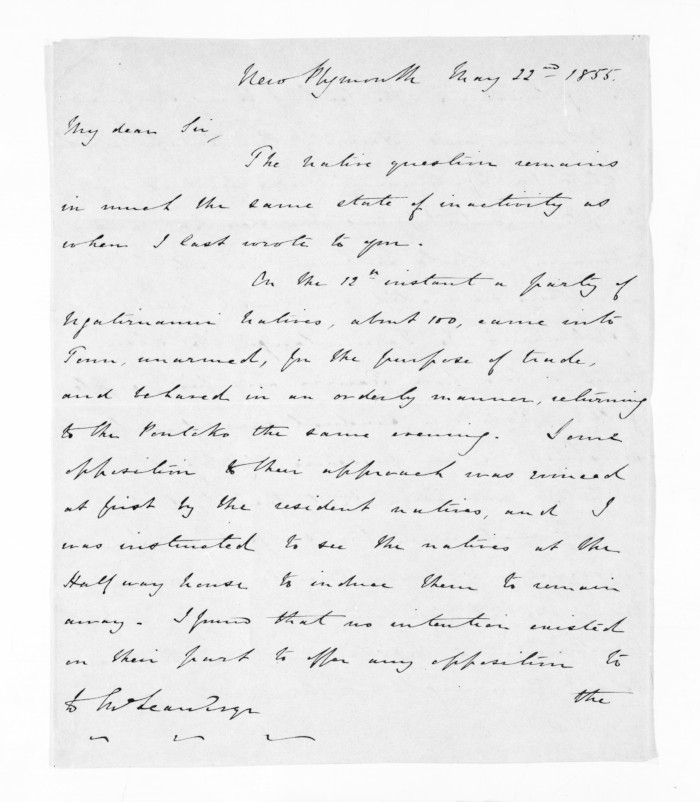 New Plymouth May 22nd 1855.
My dear Sir,
The native question remains
in much the same state of inactivity as
when I last wrote to you.
On the 12th instant a party of
Ngatiruanui Natives, about 100, came into
Town, unarmed, for the purpose of trade,
and behaved in an orderly manner, returning
to the Poutoko the same evening. Some
opposition to their approach was evinced
at first by the resident natives, and I
was instructed to see the natives at the
Halfway house to induce them to remain
away. I found that no intention existed
on their part to offer any opposition to
the
McLean Esqr